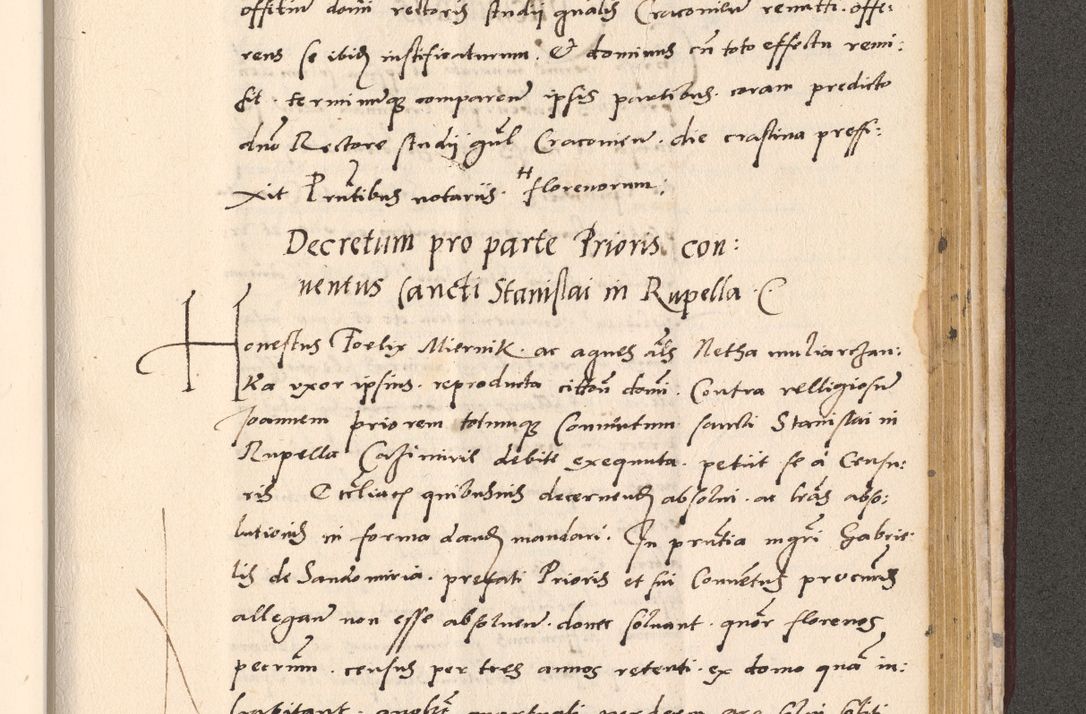 offitiu domi rectoris studij gnalis Cracovien remitti. offe:
rens se ibid iustificaturum. Et dominus cu toto effectu remi:
sit. terminumq comparen ipsis partibus. coram predicto
dno Rectore studij gnl Cracovien. die crastina preffi:
xit Prntibus notariis. H florenorum;
Decretum pro parte Prioris con:
ventus sancti Stanislai in Rupella
Honestus Foelix Miernik. ac agnes als Netha muliarchan:
ka uxor ipsius. reproducta citton domi. Contra relligiosu
Joannem priorem totumq Conventum sancti Stanislai in
Rupella Casimiris debite exequuta. petiit se a Censu:
ris Eccliacis quibusvis decernend absolvi. ac lras abso:
lutionis in forma dand mandari. In prntia mgri Gabrie
lis de Sandomiria. prefati Prioris et sui Conventus procuris
allegan non esse absolven. donec solvant. quor florenos
pecunm. census per tres annos retenti. ex domo qua in:
habitant. quobet